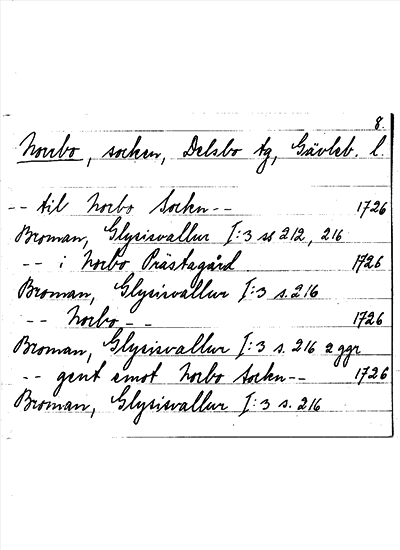 8.
Norrbo, socken, Delsbo tg, Gävleb. l.
-- til Norbo Sockn -- 1726
Broman, Glysisvallur I:3 ss 212, 216
-- i Norbo Prästagård 1726
Broman, Glysisvallur I:3 s. 216
-- Norbo -- 1726
Broman, Glysisvallur I:3 s. 216 2 ggr
-- gent emot Norbo Sockn -- 1726
Broman, Glysisvallur I:3 s. 216